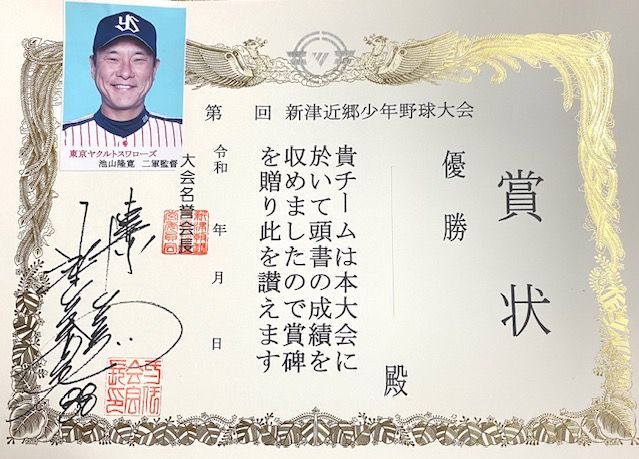 賞状
優勝
殿
第　回　新津近郷少年野球大会
貴チームは本大会に
於いて頭書の成績を
収めましたので賞碑
を贈り此を讃えます
令和　年　月　日
大会名誉会長
YS
東京ヤクルトスワローズ
池山隆寛　二軍監督
88